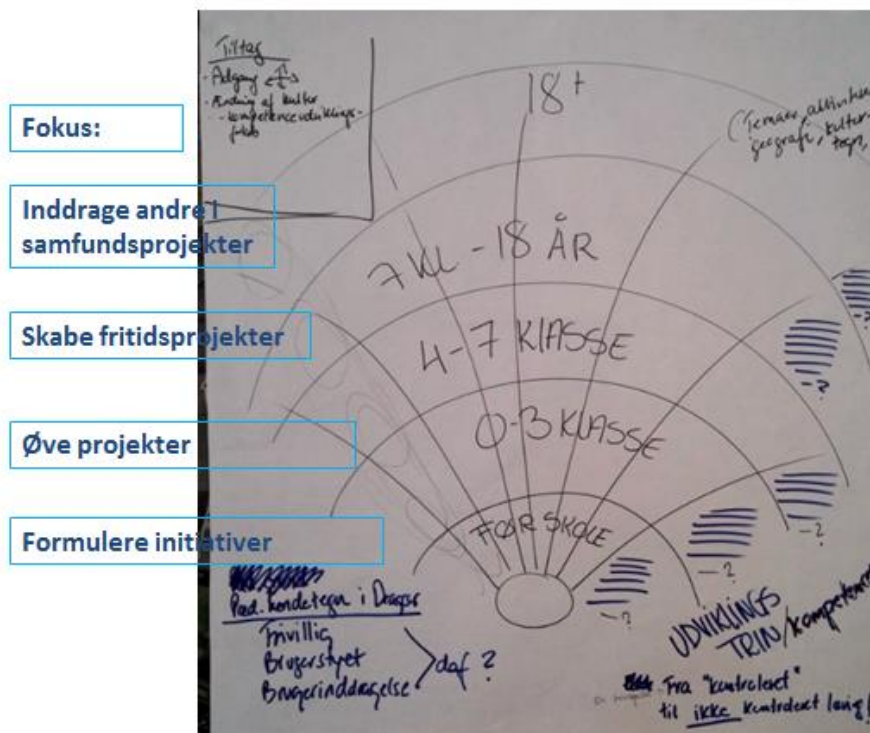 Fokus:
Inddrage andre i
samfundsprojekter
Skabe fritidsprojekter
Øve projekter
Formulere initiativer
Tiltag
- Adgang
- Ændring af kultur
- kompetenceudviklings-
fokus
18+
(Temaer, aktiviteter
geografi, kultur-
tegn,
7 KL - 18 ÅR
4-7 KLASSE
0-3 KLASSE
FØR SKOLE
-?
-?
-?
-?
-?
UDVIKLINGS
TRIN/kompetence
Pæd. kendetegn i Dragør
Frivillig
Brugerstyret
Brugerinddragelse
def ?
Fra "kontroleret"
til ikke kontroleret